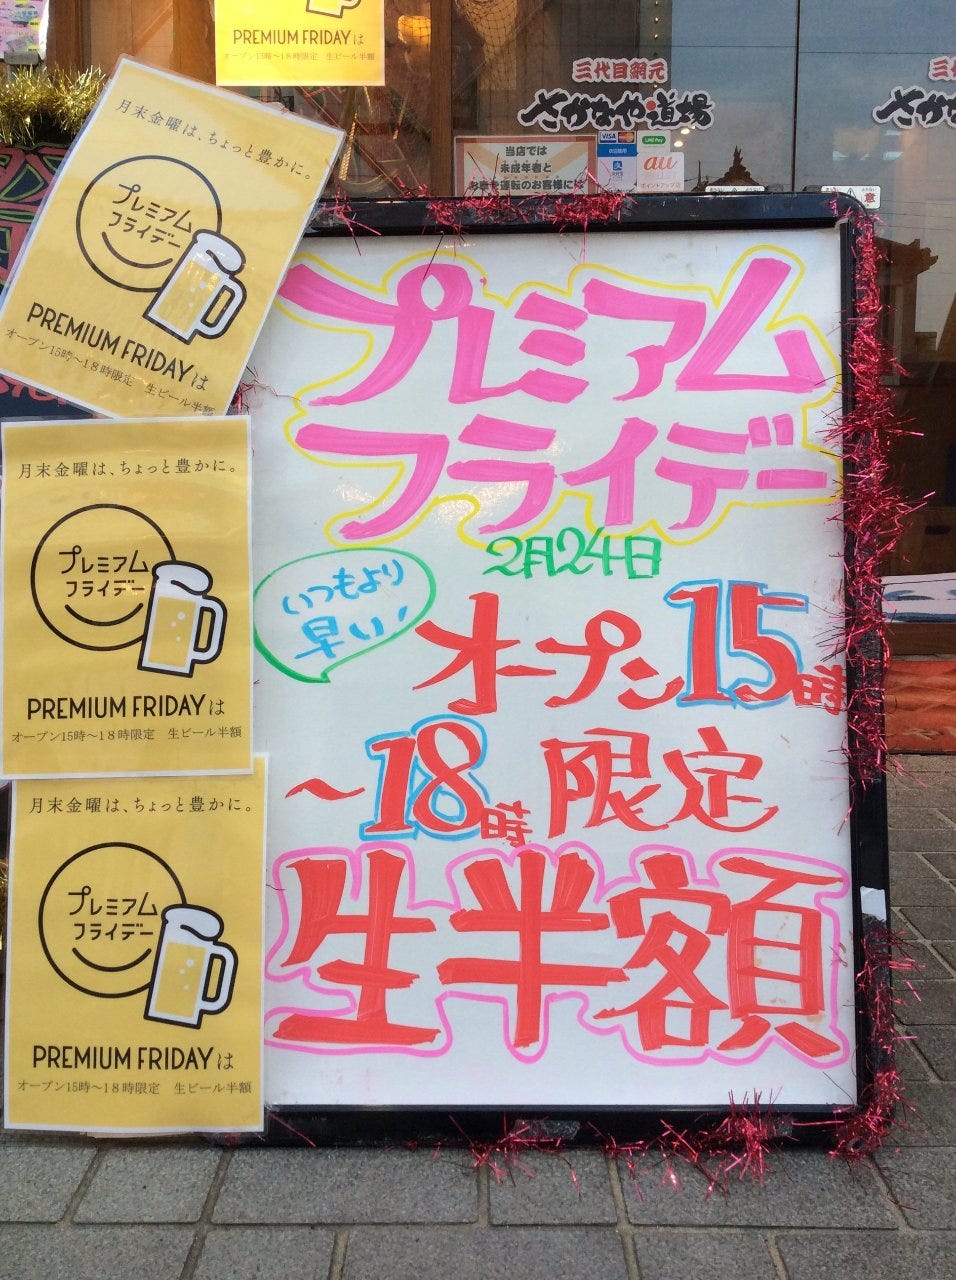 PREMIUM FRIDAYは
オープン15時～18時限定 生ビール半額
三代目網元
さかなや道場
当店では
未成年者と
お車を運転のお客様には
VISA
LINE Pay
au
月末金曜は、ちょっと豊かに。
プレミアム
フライデー
PREMIUM FRIDAYは
オープン15時～18時限定 生ビール半額
月末金曜は、ちょっと豊かに。
プレミアム
フライデー
PREMIUM FRIDAYは
オープン15時～18時限定 生ビール半額
月末金曜は、ちょっと豊かに。
プレミアム
フライデー
PREMIUM FRIDAYは
オープン15時～18時限定 生ビール半額
プレミアム
フライデー
2月24日
いつもより
早い!
オープン15時
～18時限定
生半額